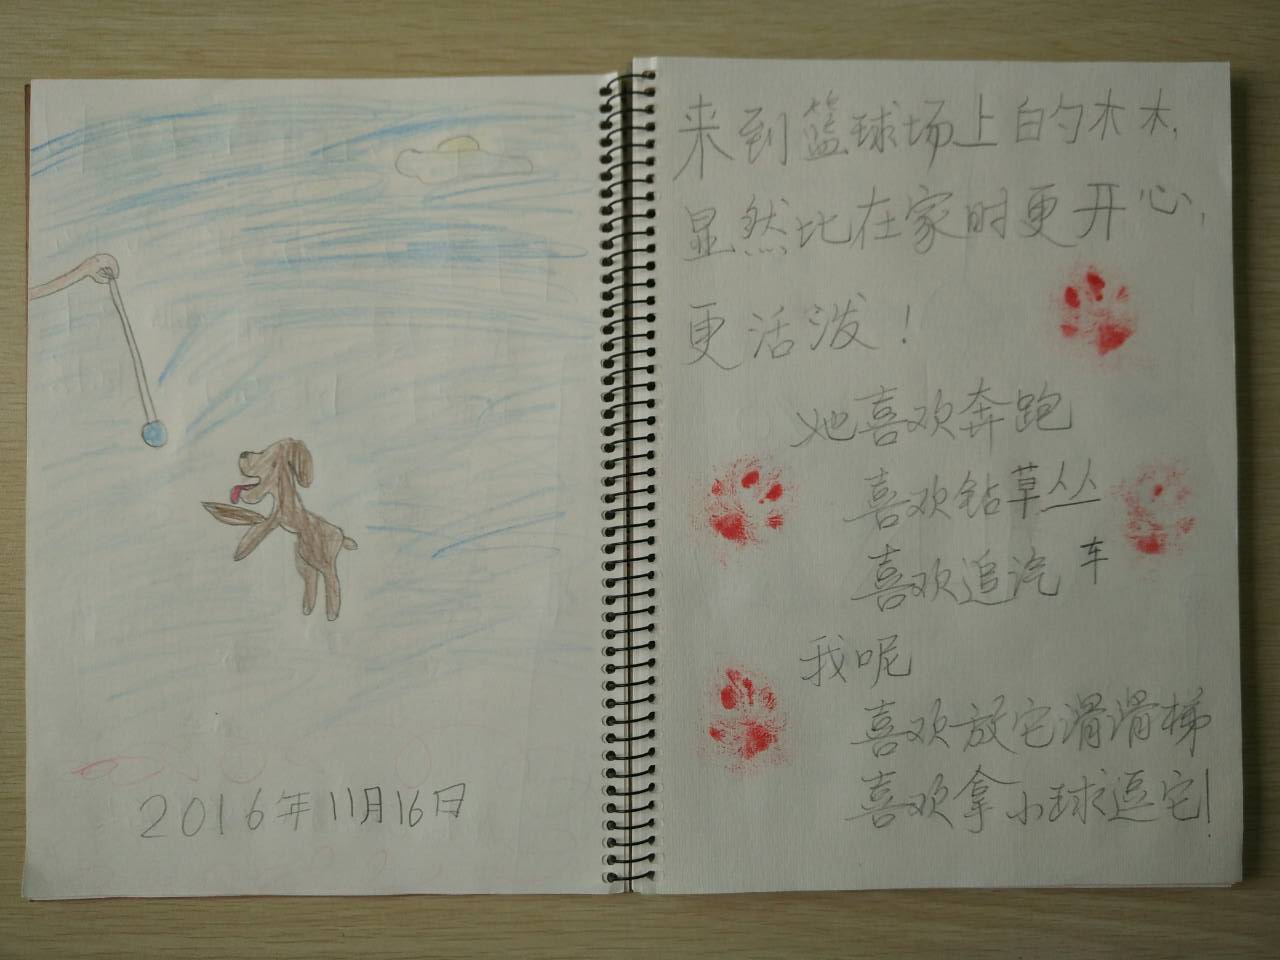 2016年11月16日
来到篮球场上的木木,
显然比在家时更开心,
更活泼!
她喜欢奔跑
喜欢钻草丛
喜欢追汽车
我呢
喜欢放它滑滑梯
喜欢拿小球逗它!